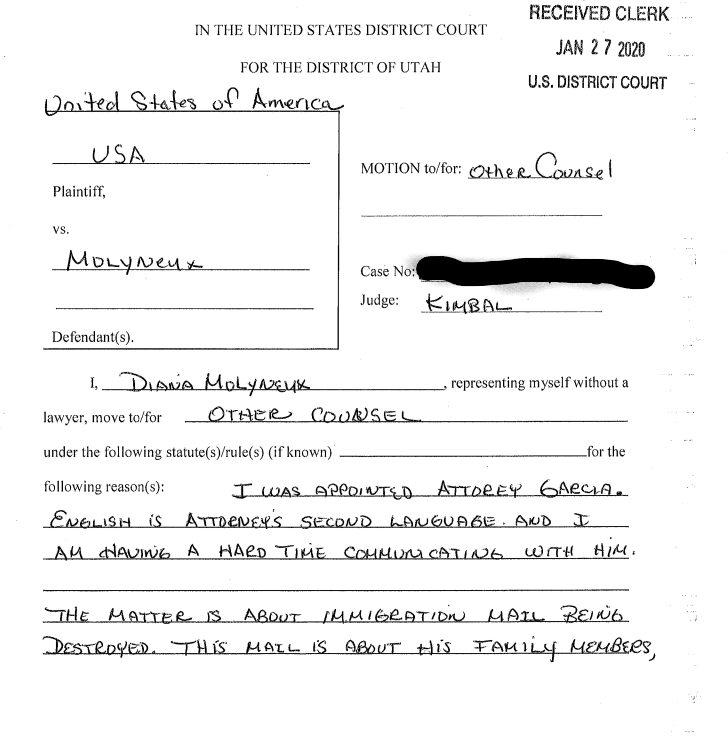 RECEIVED CLERK
JAN 27 2020
U.S. DISTRICT COURT
IN THE UNITED STATES DISTRICT COURT
FOR THE DISTRICT OF UTAH
United States of America
USA
Plaintiff,
vs.
MOLYNEUX
Defendant(s).
MOTION to/for: Other Counsel
Case No:
Judge: KIMBAL
I, DIANA MOLYNEUX, representing myself without a
lawyer, move to/for OTHER COUNSEL
under the following statute(s)/rule(s) (if known) for the
following reason(s): I WAS APPOINTED ATTOREY GARCIA.
ENGLISH IS ATTORNEY'S SECOND LANGUAGE. AND I
AM HAVING A HARD TIME COMMUNICATING WITH HIM.
THE MATTER IS ABOUT IMMIGRATION MAIL BEING
DESTROYED. THIS MAIL IS ABOUT HIS FAMILY MEMBERS,